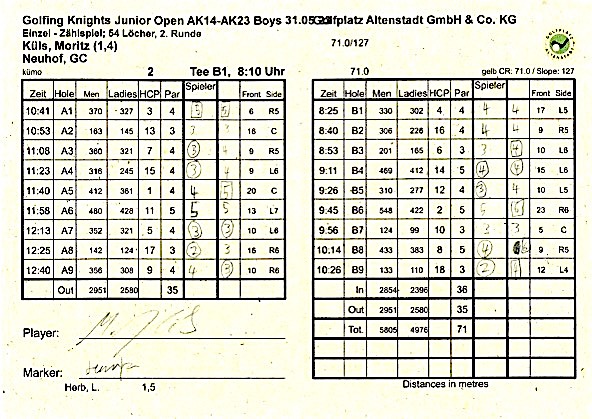 Golfing Knights Junior Open AK14-AK23 Boys 31.05 Golfplatz Altenstadt GmbH & Co. KG
Einzel - Zählspiel; 54 Löcher, 2. Runde
Küls, Moritz (1,4) 71.0/127
Neuhof, GC
kümo 2 Tee B1, 8:10 Uhr 71.0 gelb CR: 71.0 / Slope: 127
GOLFPLATZ ALTENSTADT
Zeit Hole Men Ladies HCP Par Spieler Front Side
10:41 A1 370 327 3 4 5 5 6 R5
10:53 A2 163 145 13 3 3 3 16 C
11:08 A3 360 321 7 4 3 4 9 R5
11:23 A4 316 245 15 4 3 4 9 L6
11:40 A5 412 361 1 4 4 5 20 C
11:58 A6 480 428 11 5 5 5 13 L7
12:13 A7 352 321 5 4 3 3 10 L6
12:25 A8 142 124 17 3 2 3 16 R6
12:40 A9 356 308 9 4 4 3 10 R6
Out 2951 2580 35
Zeit Hole Men Ladies HCP Par Spieler Front Side
8:25 B1 330 302 4 4 4 4 17 L5
8:40 B2 306 226 16 4 4 4 9 R5
8:53 B3 201 165 6 3 3 4 10 L8
9:11 B4 469 412 14 5 4 4 15 L6
9:26 B5 310 277 12 4 3 4 10 L5
9:45 B6 548 422 2 5 5 6 23 R6
9:56 B7 124 99 10 3 3 3 5 C
10:14 B8 433 383 8 5 4 9 R5
10:26 B9 133 110 18 3 2 12 L4
In 2854 2396 36
Out 2951 2580 35
Tot. 5805 4976 71
Player:
Marker:
Herb, L. 1,5
Distances in metres